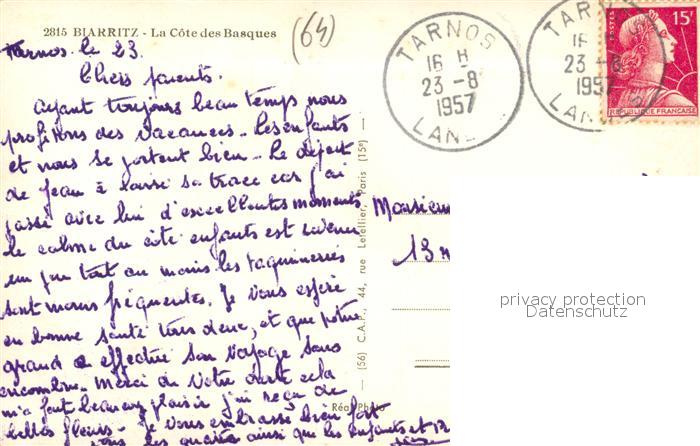 2815 BIARRITZ - La Côte des Basques
(64)
Tarnos le 23.
Chers parents.
Ayant toujours beau temps nous
profitons des vacances - Les enfants
et nous se portent bien - Le départ
de Jean à laissé sa trace car j'ai
passé avec lui d'excellents moments
le calme du côté enfants est revenu
en que tout au moins les taquineries
sont moins fréquentes. Je vous espère
en bonne santé tous deux, et que
grand a effectué son voyage sans
encombre. Merci de votre carte cela
m'a fait beaucoup plaisir j'ai reçu de
belles fleurs - Je vous embrasse bien fort
tous les quatre ainsi que les enfants et
(56) C.A.P., 44, rue Letellier, Paris (15e)
Réal-Photo
TARNOS
16 H
23 -8
1957
LAN
TAR
16 H
23 -8
1957
LAN
POSTES
15F
REPUBLIQUE FRANCAISE
Monsieur
13
privacy protection
Datenschutz